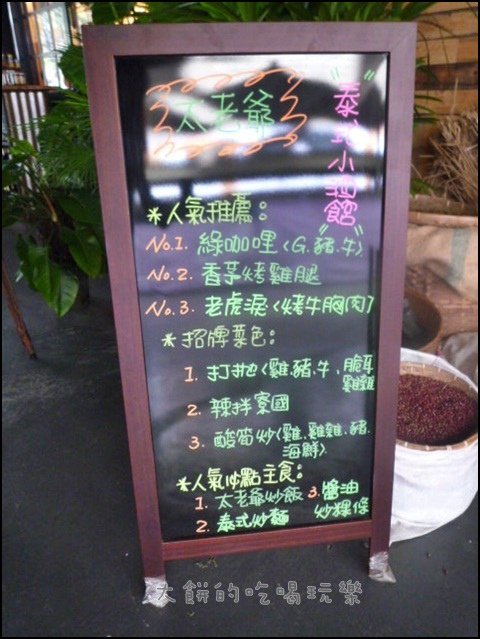 太老爺
"泰式小酒館"
*人氣推薦:
No.1. 綠咖哩(G.豬.牛)
No.2. 香茅烤雞腿
No.3. 老虎淚(烤牛胸肉)
*招牌菜色:
1. 打拋(雞.豬.牛.脆耳
雞雞
2. 辣拌寮國
3. 酸筍炒(雞.雞雞.豬.
海鮮)
*人氣必點主食:
1. 太老爺炒飯
2. 泰式炒麵
3. 醬油
炒粿條
大餅的吃喝玩樂